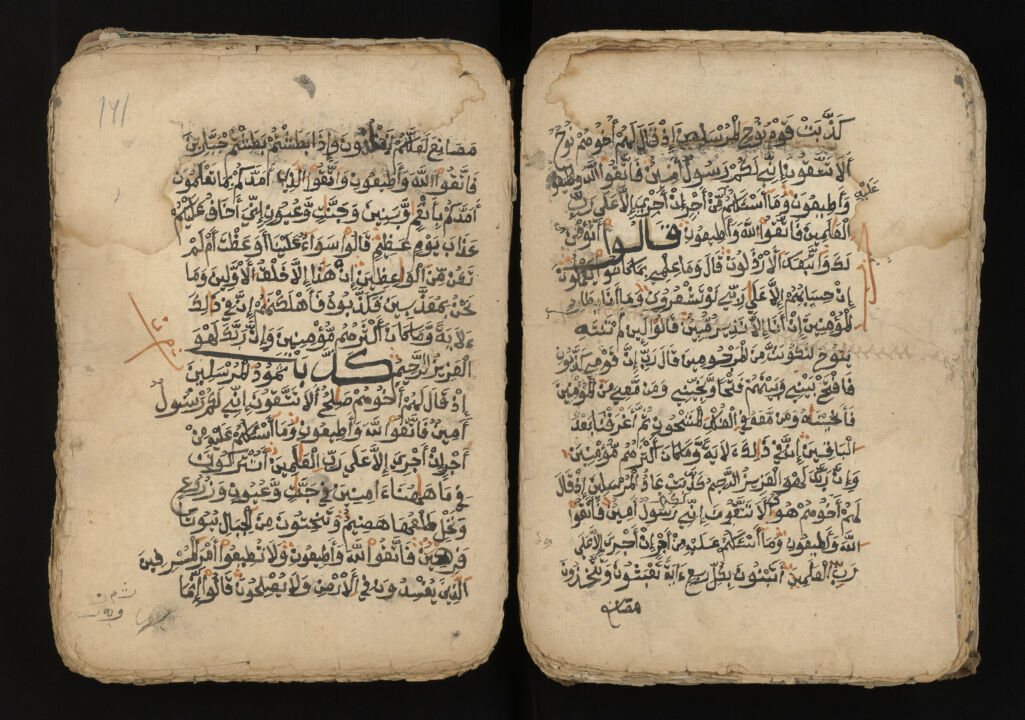 كَذَّبَتْ قَوْمُ نُوحٍ الْمُرْسَلِينَ إِذْ قَالَ لَهُمْ أَخُوهُمْ نُوحٌ
أَلَا تَتَّقُونَ إِنِّي لَكُمْ رَسُولٌ أَمِينٌ فَاتَّقُوا اللَّهَ
وَأَطِيعُونِ وَمَا أَسْـَٔلُكُمْ عَلَيْهِ مِنْ أَجْرٍ إِنْ أَجْرِيَ إِلَّا عَلَىٰ رَبِّ
الْعَٰلَمِينَ فَاتَّقُوا اللَّهَ وَأَطِيعُونِ قَالُوا أَنُؤْمِنُ
لَكَ وَاتَّبَعَكَ الْأَرْذَلُونَ قَالَ وَمَا عِلْمِي بِمَا كَانُوا يَعْمَلُونَ
إِنْ حِسَابُهُمْ إِلَّا عَلَىٰ رَبِّي لَوْ تَشْعُرُونَ وَمَا أَنَا بِطَارِدِ
الْمُؤْمِنِينَ إِنْ أَنَا إِلَّا نَذِيرٌ مُبِينٌ قَالُوا لَئِنْ لَمْ تَنْتَهِ
يَٰنُوحُ لَتَكُونَنَّ مِنَ الْمَرْجُومِينَ قَالَ رَبِّ إِنَّ قَوْمِي كَذَّبُونِ
فَافْتَحْ بَيْنِي وَبَيْنَهُمْ فَتْحًا وَنَجِّنِي وَمَنْ مَعِي مِنَ الْمُؤْمِنِينَ
فَأَنْجَيْنَٰهُ وَمَنْ مَعَهُ فِي الْفُلْكِ الْمَشْحُونِ ثُمَّ أَغْرَقْنَا بَعْدُ
الْبَاقِينَ إِنَّ فِي ذَٰلِكَ لَءَايَةً وَمَا كَانَ أَكْثَرُهُمْ مُؤْمِنِينَ
وَإِنَّ رَبَّكَ لَهُوَ الْعَزِيزُ الرَّحِيمُ كَذَّبَتْ عَادٌ الْمُرْسَلِينَ إِذْ قَالَ
لَهُمْ أَخُوهُمْ هُودٌ أَلَا تَتَّقُونَ إِنِّي لَكُمْ رَسُولٌ أَمِينٌ فَاتَّقُوا
اللَّهَ وَأَطِيعُونِ وَمَا أَسْـَٔلُكُمْ عَلَيْهِ مِنْ أَجْرٍ إِنْ أَجْرِيَ إِلَّا عَلَىٰ
رَبِّ الْعَٰلَمِينَ أَتَبْنُونَ بِكُلِّ رِيعٍ ءَايَةً تَعْبَثُونَ وَتَتَّخِذُونَ
مصانع
١٧١
مَصَانِعَ لَعَلَّكُمْ تَخْلُدُونَ وَإِذَا بَطَشْتُمْ بَطَشْتُمْ جَبَّارِينَ
فَاتَّقُوا اللَّهَ وَأَطِيعُونِ وَاتَّقُوا الَّذِي أَمَدَّكُمْ بِمَا تَعْلَمُونَ
أَمَدَّكُمْ بِأَنْعَٰمٍ وَبَنِينَ وَجَنَّٰتٍ وَعُيُونٍ إِنِّي أَخَافُ عَلَيْكُمْ
عَذَابَ يَوْمٍ عَظِيمٍ قَالُوا سَوَاءٌ عَلَيْنَا أَوَعَظْتَ أَمْ لَمْ
تَكُنْ مِنَ الْوَاعِظِينَ إِنْ هَٰذَا إِلَّا خُلُقُ الْأَوَّلِينَ وَمَا
نَحْنُ بِمُعَذَّبِينَ فَكَذَّبُوهُ فَأَهْلَكْنَٰهُمْ إِنَّ فِي ذَٰلِكَ
لَءَايَةً وَمَا كَانَ أَكْثَرُهُمْ مُؤْمِنِينَ وَإِنَّ رَبَّكَ لَهُوَ
الْعَزِيزُ الرَّحِيمُ كَذَّبَتْ ثَمُودُ الْمُرْسَلِينَ
إِذْ قَالَ لَهُمْ أَخُوهُمْ صَٰلِحٌ أَلَا تَتَّقُونَ إِنِّي لَكُمْ رَسُولٌ
أَمِينٌ فَاتَّقُوا اللَّهَ وَأَطِيعُونِ وَمَا أَسْـَٔلُكُمْ عَلَيْهِ مِنْ
أَجْرٍ إِنْ أَجْرِيَ إِلَّا عَلَىٰ رَبِّ الْعَٰلَمِينَ أَتُتْرَكُونَ
فِي مَا هَٰهُنَا ءَامِنِينَ فِي جَنَّٰتٍ وَعُيُونٍ وَزُرُوعٍ
وَنَخْلٍ طَلْعُهَا هَضِيمٌ وَتَنْحِتُونَ مِنَ الْجِبَالِ بُيُوتًا
فَٰرِهِينَ فَاتَّقُوا اللَّهَ وَأَطِيعُونِ وَلَا تُطِيعُوا أَمْرَ الْمُسْرِفِينَ
الَّذِينَ يُفْسِدُونَ فِي الْأَرْضِ وَلَا يُصْلِحُونَ قَالُوا إِنَّمَا